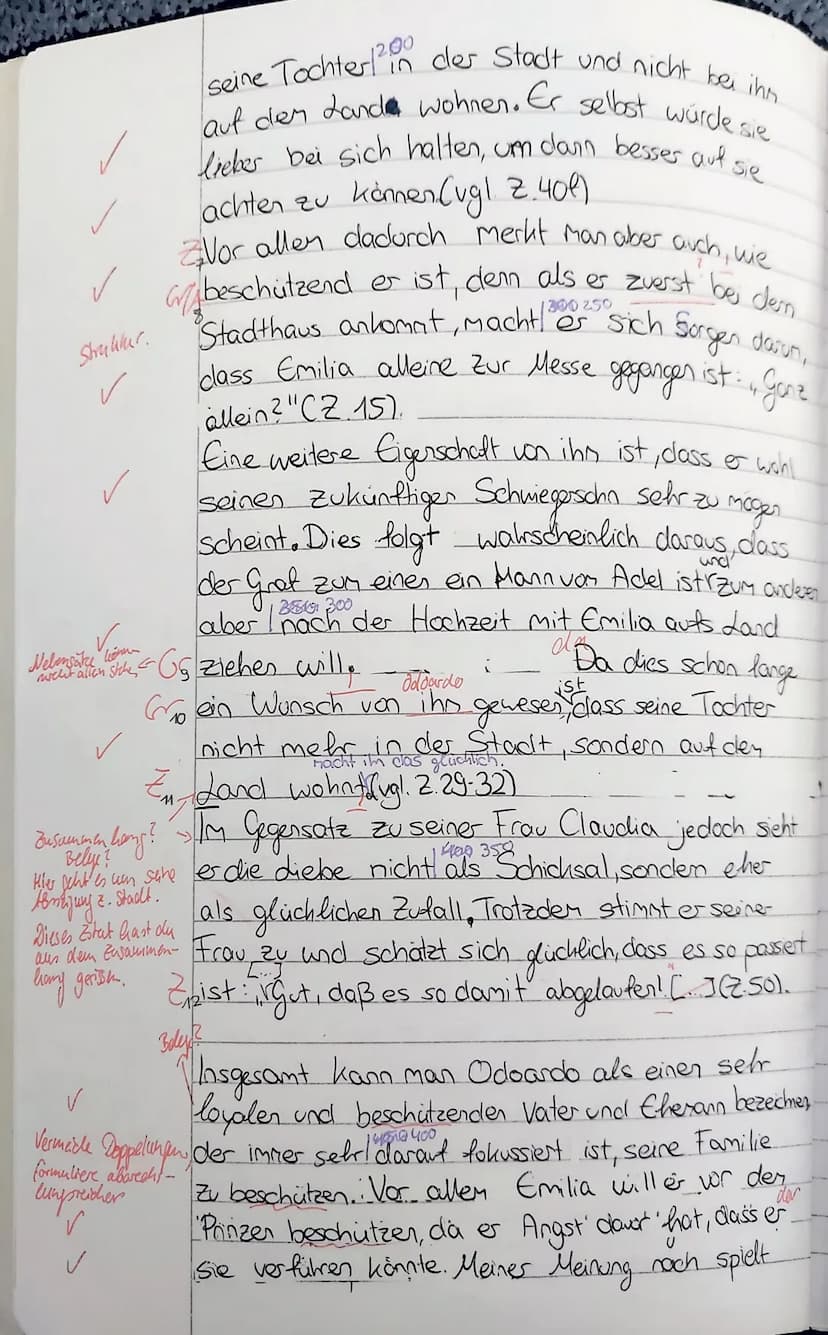 seine Tochter|200 in der Stadt und nicht bei ihm
auf dem Land wohnen. Er selbst würde sie
lieber bei sich halten, um dann besser auf sie
achten zu können.(vgl Z.40f)
Z7 Vor allem dadurch merkt man aber auch, wie
Gr8 beschützend er ist, denn als er zuerst bei dem
Struktur.
Stadthaus ankommt, macht| 250 er sich Sorgen darum,
dass Emilia alleine zur Messe gegangen ist: „Ganz
allein?"(Z.15).
Eine weitere Eigenschaft von ihm ist, dass er wohl
seinen zukünftigen Schwiegersohn sehr zu mögen
scheint. Dies folgt wahrscheinlich daraus, dass
der Graf zum einen ein Mann von Adel ist und zum anderen
aber | 300 nach der Hochzeit mit Emilia aufs Land
Nebensätze können nicht allein stehen ← G9 ziehen will, da Da dies schon lange
Gr10 ein Wunsch von ihm Odoardo gewesen ist, dass seine Tochter
nicht mehr in der Stadt, sondern auf dem
Z11 Land wohnt macht ihn das glücklich. (vgl. Z.29-32)
Zusammenhang? Belege?
Im Gegensatz zu seiner Frau Claudia jedoch sieht
Hier geht es um seine Abneigung z. Stadt.
er die Liebe nicht| 400 350 als Schicksal, sondern eher
als glücklichen Zufall. Trotzdem stimmt er seiner
Dieses Zitat hast du aus dem Zusammenhang gerissen.
Frau zu und schätzt sich glücklich, dass es so passiert
Z12 ist: „[...] Gut, daß es so damit abgelaufen! [...](Z.50).
Belege?
Insgesamt kann man Odoardo als einen sehr
loyalen und beschützenden Vater und Ehemann bezeichnen,
Vermeide Doppelungen, formuliere abwechslungsreicher
der immer sehr| 400 darauf fokussiert ist, seine Familie
zu beschützen. Vor allem Emilia will er vor dem
Prinzen beschützen, da er Angst davor hat, dass er der
sie verführen könnte. Meiner Meinung nach spielt